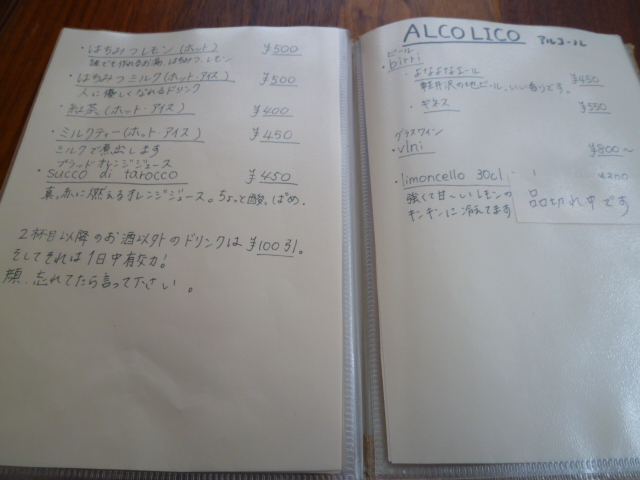 ・はちみつレモン(ホット) ¥500
誰でも作れるお湯、はちみつ、レモン
・はちみつミルク(ホット・アイス) ¥500
人に優しくなれるドリンク
・紅茶(ホット・アイス) ¥400
・ミルクティー(ホット・アイス) ¥450
ミルクで煮出します
ブラッドオレンジジュース
・succo di tarocco ¥450
真っ赤に燃えるオレンジジュース。ちょっと酸っぱめ。
2杯目以降のお酒以外のドリンクは¥100引。
そしてそれは1日中有効!
顔、忘れてたら言って下さい。
ALCOLICO アルコール
ビール
・birri
・よなよなエール ¥450
軽井沢の地ビール、いい香りです。
・ギネス ¥550
グラスワイン
・vini ¥800〜
・limoncello 30cl
強くて甘〜いレモンの
キンキンに冷えてます
品切れ中です